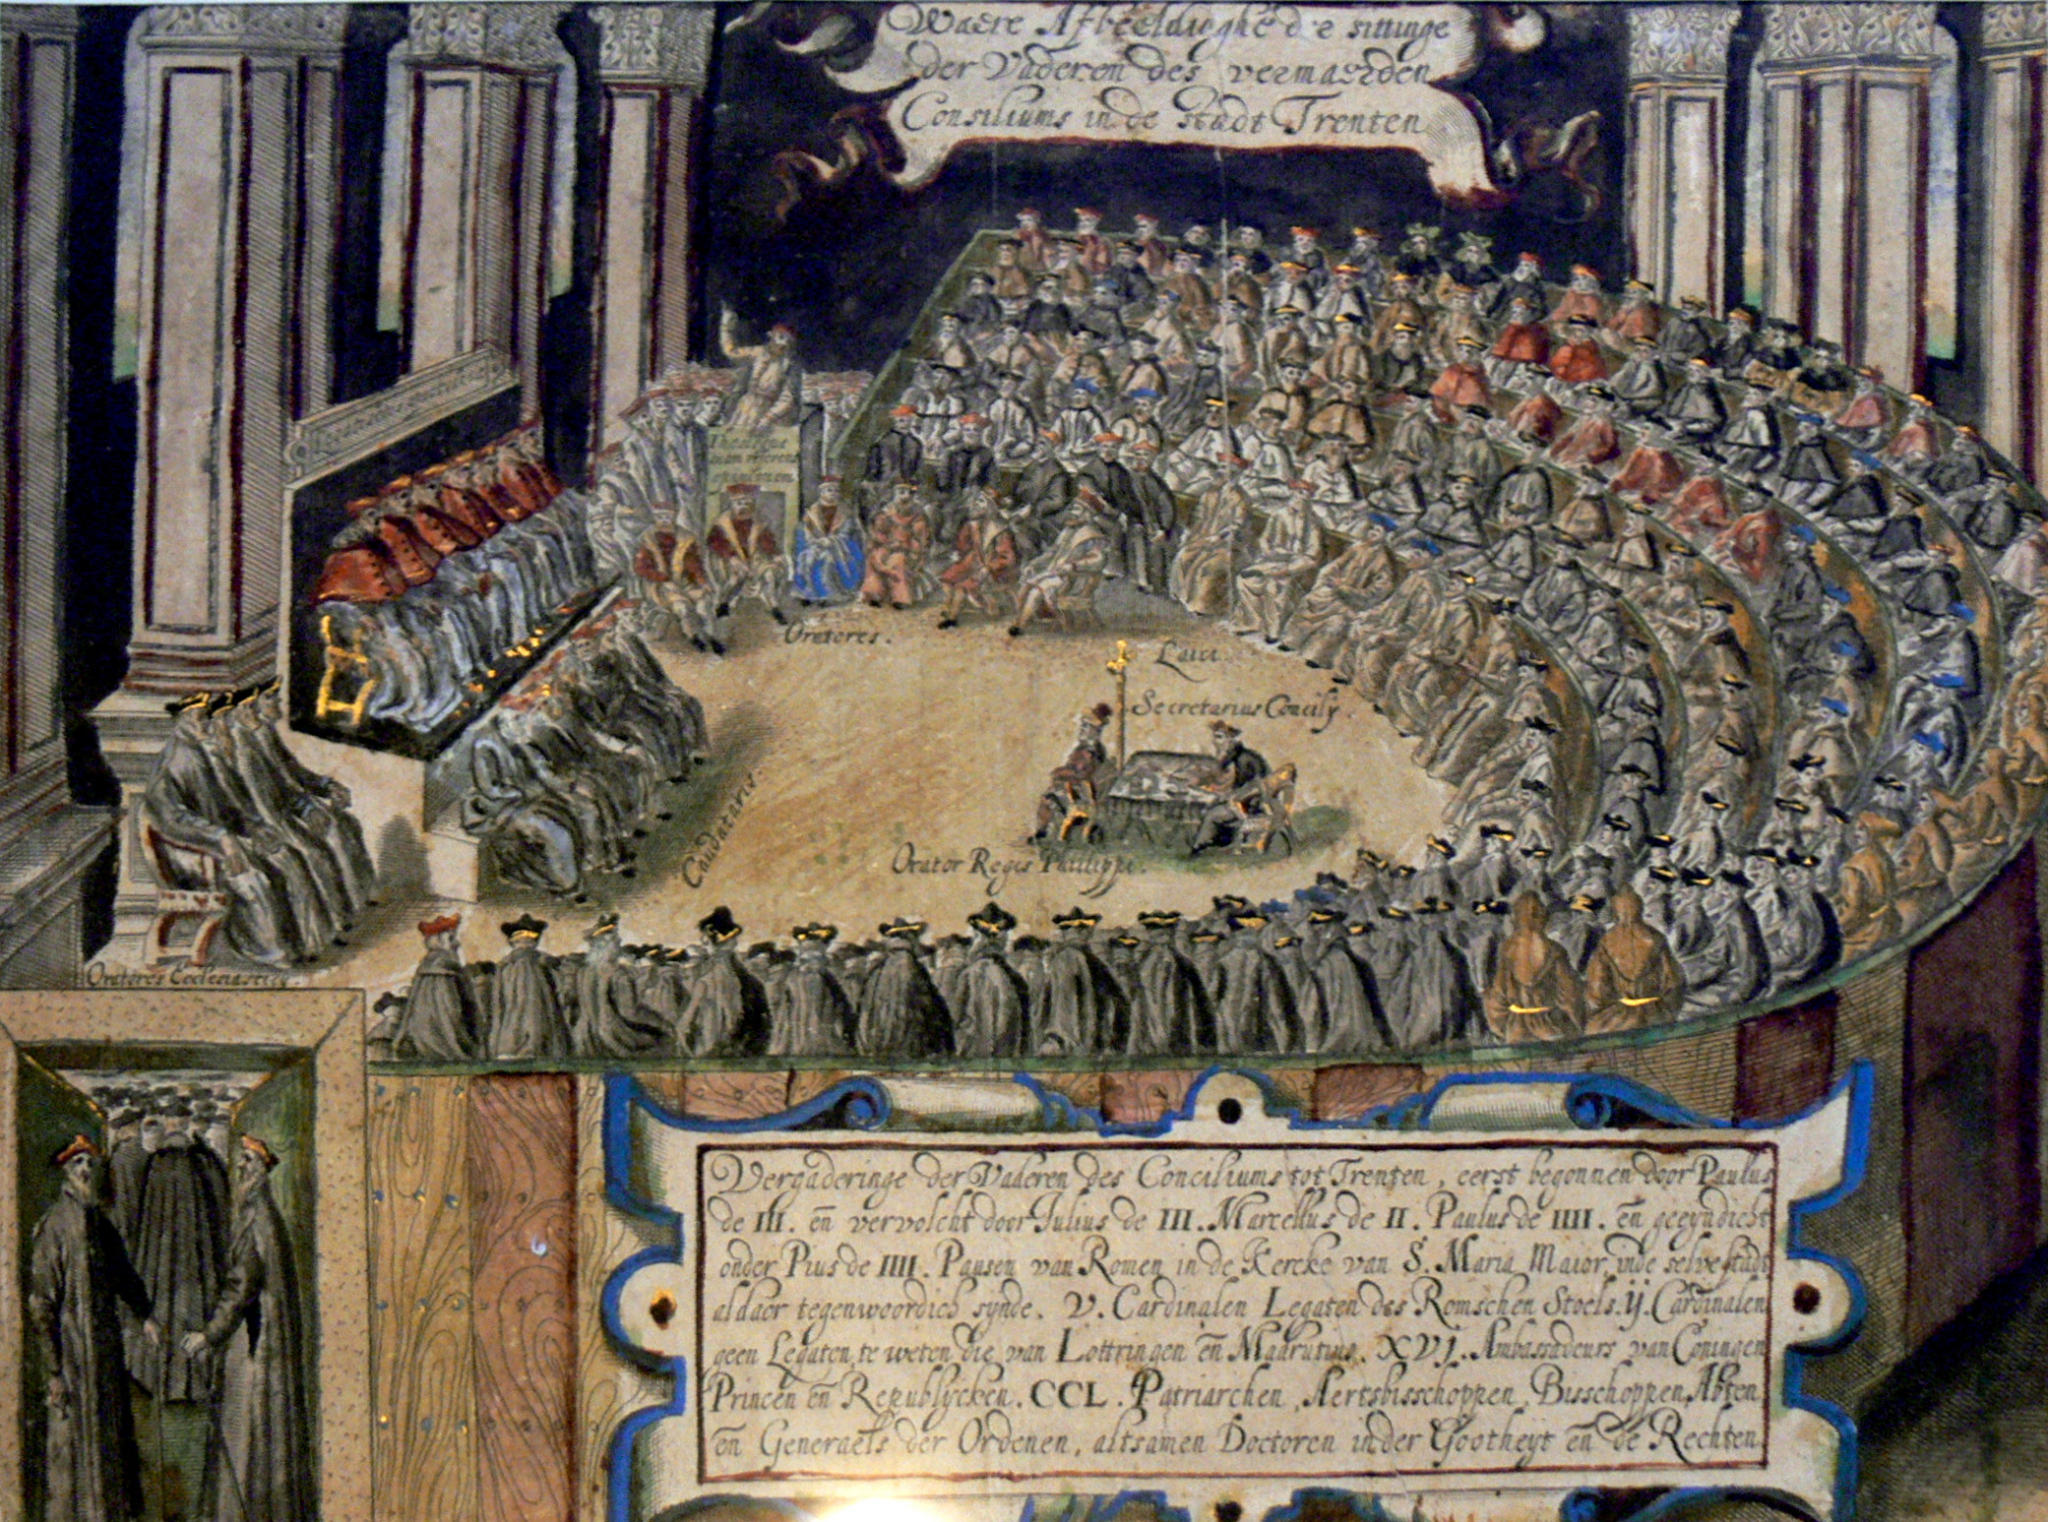 Waere Afbeeldinghe de sittinge
der Vaderen des vermaerden
Consiliums in de stadt Trenten
Oratores.
Laici
Secretarius Concily.
Caudatarij.
Orator Regis Phillippi.
Oratores Ecclesiastici.
Vergaderinge der Vaderen des Conciliums tot Trenten, eerst begonnen door Paulus
de III. en̄ vervolcht door Julius de III. Marcellus de II. Paulus de IIII. en̄ geeyndicht
onder Pius de IIII. Pausen van Romen in de Kercke van S. Maria Maior, inde selve stadt
aldaer tegenwoordich synde. V. Cardinalen Legaten des Romschen Stoels. ij. Cardinalen
geen Legaten, te weten die van Lottringen en̄ Madrutius. XVJ. Ambassadeurs van Coningen
Princen en̄ Republycken. CCL. Patriarchen, Aertsbisschoppen, Bisschoppen, Abten,
en̄ Generaels der Ordenen, altsamen Doctoren in der Gootheyt en̄ de Rechten